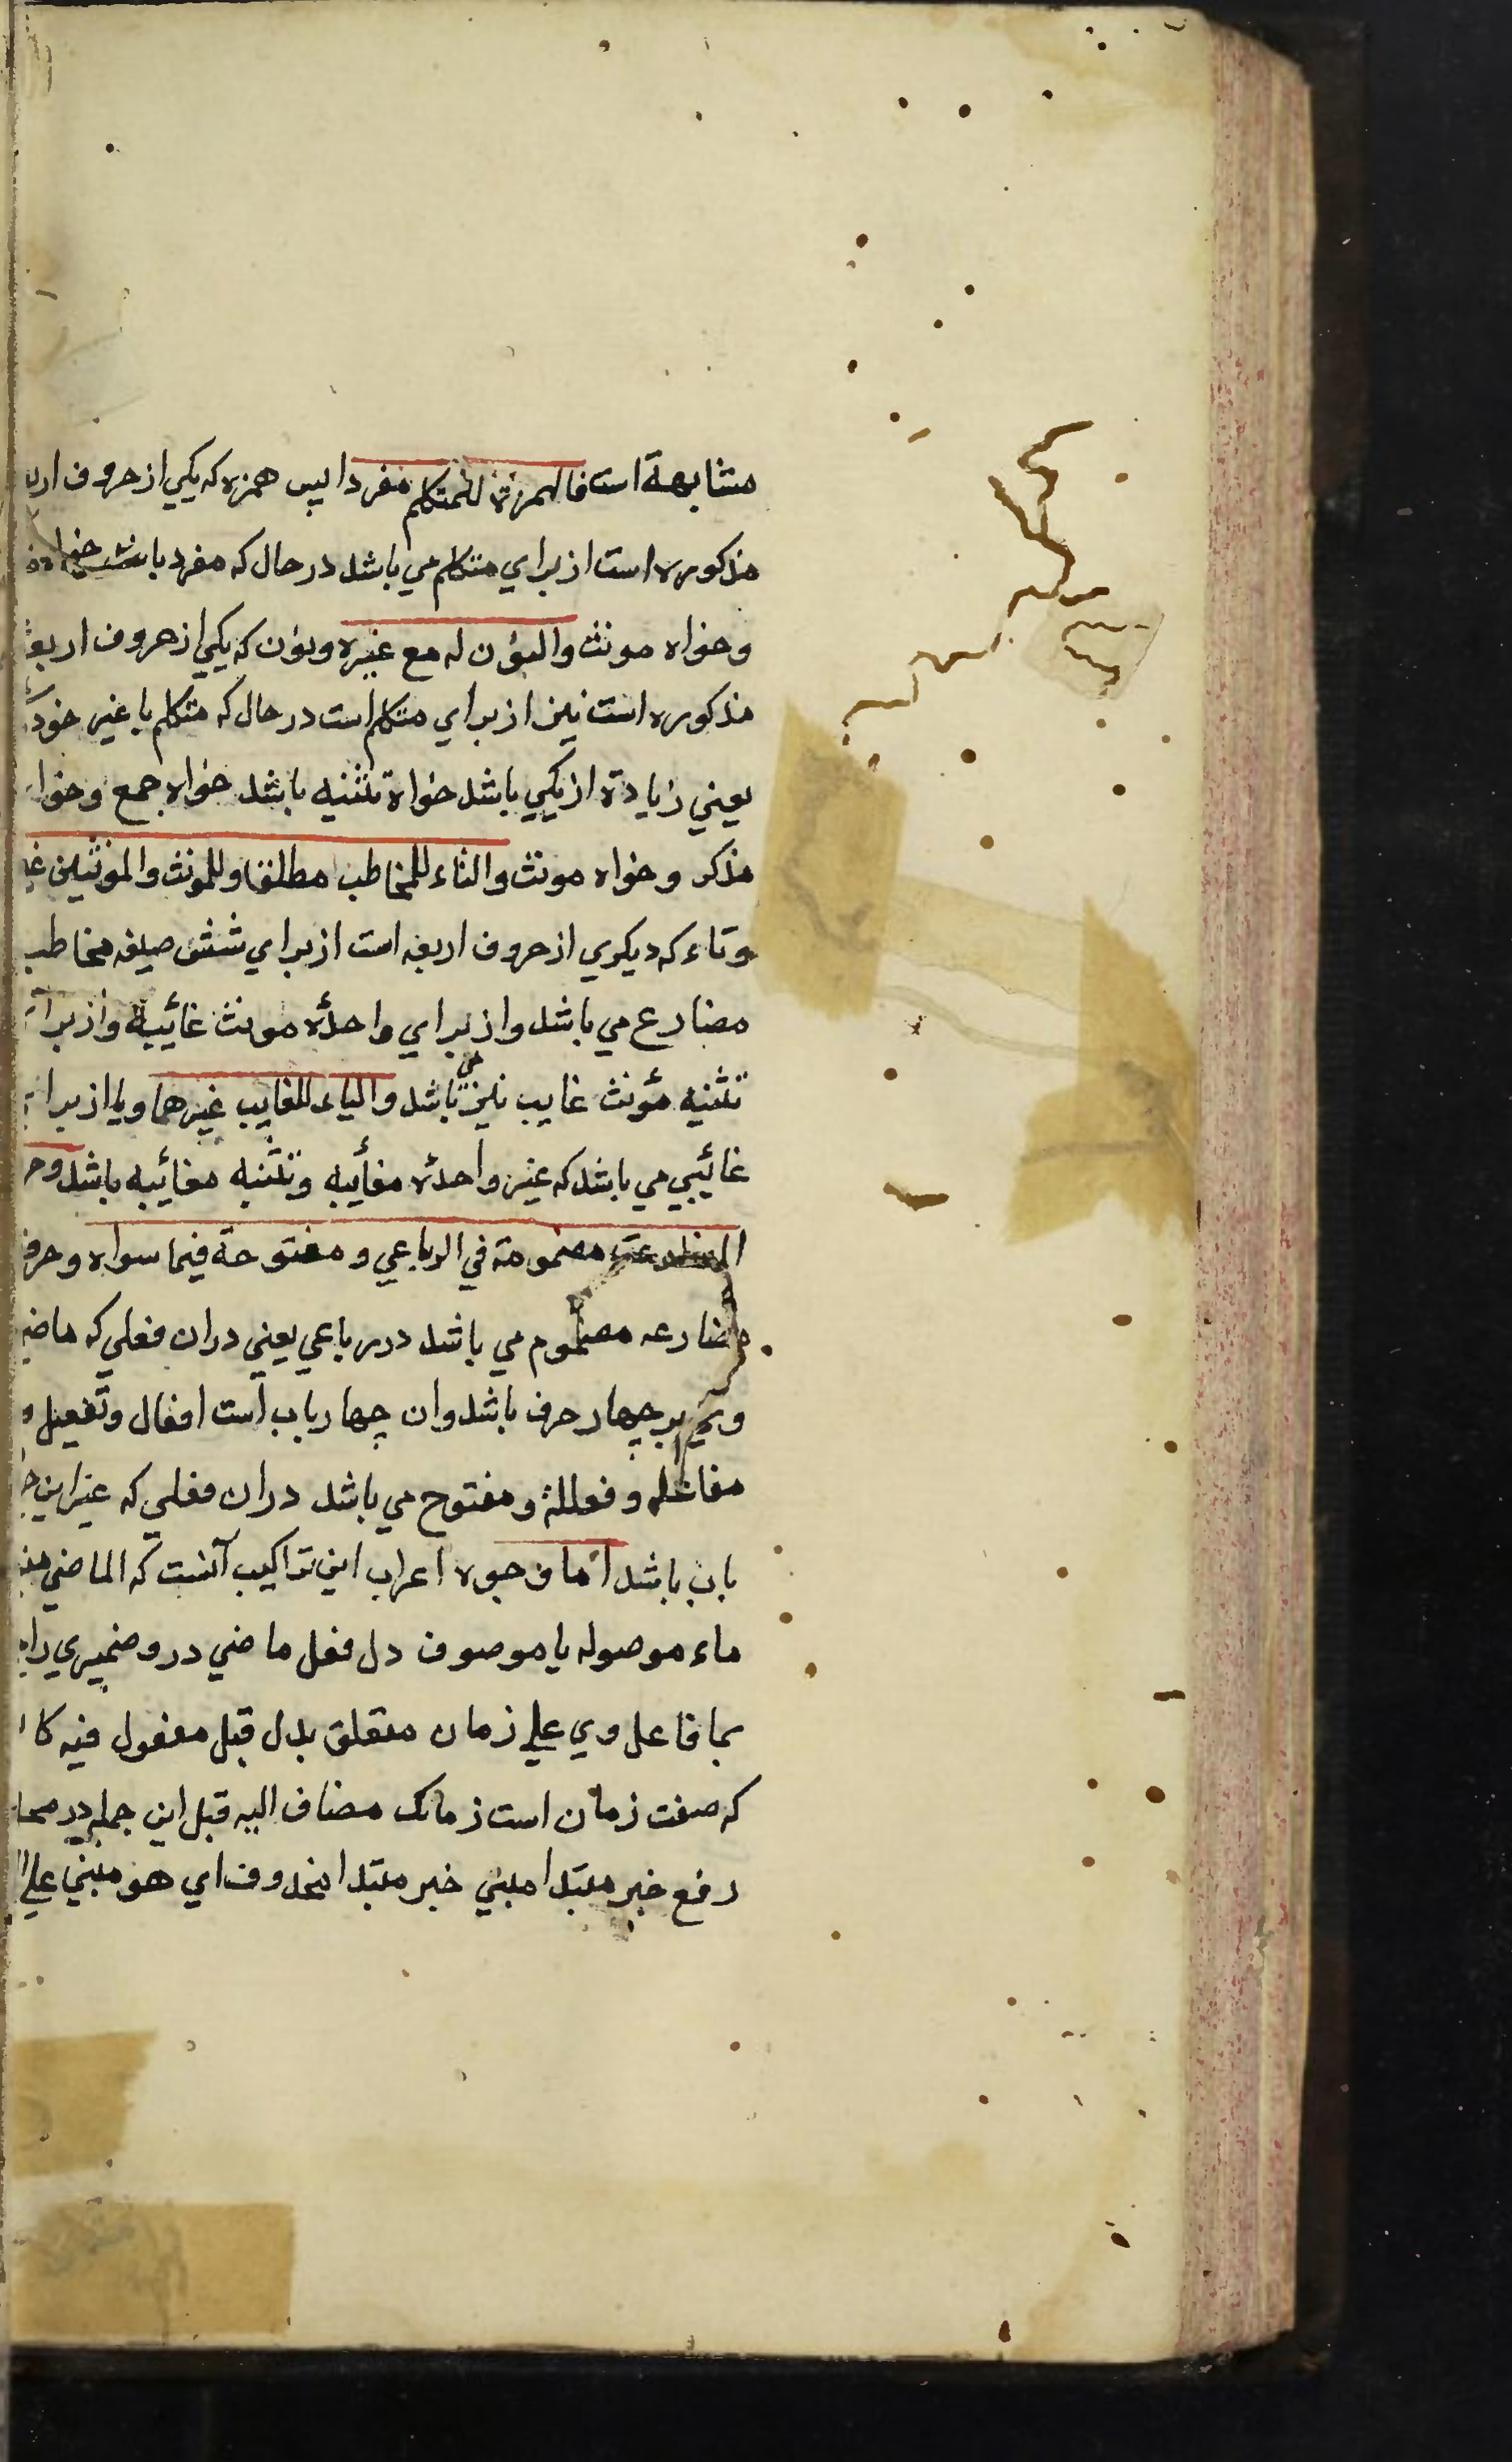 مشابهة است فالهمزة للمتكلم مفردا پس همزه كه يكي از حروف
مذكوره است از براي متكلم مي باشد در حال كه مفرد باشد
وخواه مونث والنون له مع غيره ونون كه يكي از حروف اربعة
مذكوره است نيز از براي متكلم است در حال كه متكلم با غير خود
يعني زيادة از يكي باشد خواة تثنيه باشد خواه جمع وخواه
مذكر وخواه مونث والتاء للمخاطب مطلقا وللمونث والمونثين
وتاء كه ديكري از حروف اربعه است از براي شش صيغه مخاطب
مضارع مي باشد واز براي واحدهٔ مونث غائيبه واز براي
تثنيه مؤنث غايب نيز مي باشد والياء للغايب غيرهما ويا از براي
غائيبي مي باشد كه غير واحدهٔ مغائبه وتثنيه مغائيبه باشد
المضارعة مضمومة في الرباعي ومفتوحة فيما سواه وحرف
مضارعه مضموم مي باشد در رباعي يعني دران فعلي كه
وي بر چهار حرف باشد وان چهار باب است افعال وتفعيل و
مفاعله وفعللة ومفتوح مي باشد دران فعلي كه غير اين
باب باشد اما وجوه اعراب اين تراكيب آنست كه الماضي
ماء موصوله يا موصوف دل فعل ماضي درو ضميري
بما فاعل وي علي زمان متعلق بدل قبل مفعول فيه
كه صفت زمان است زمانك مضاف اليه قبل اين جمله در
رفع خبر مبتدا مبني خبر مبتدا محذوف اي هو مبني علي